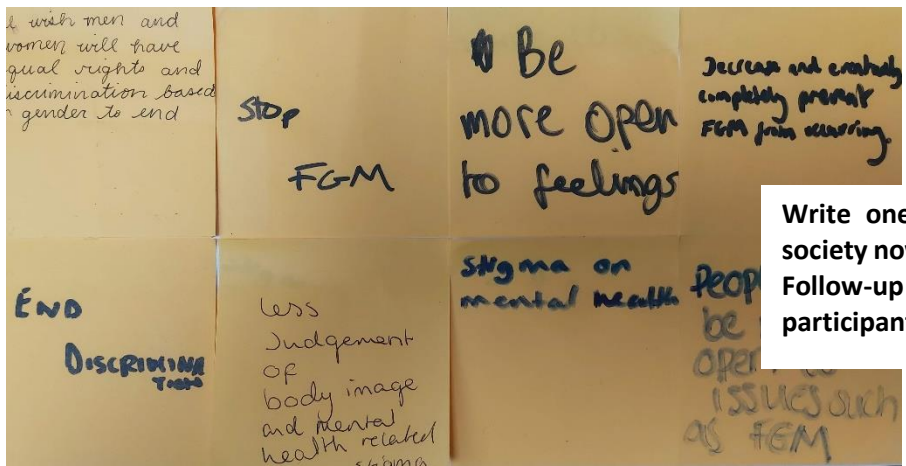 I wish men and
women will have
equal rights and
discrimination based
gender to end
Stop
FGM
Be
more open
to feelings
Decrease and eventually
completely prevent
FGM from occurring.
Write one
society
Follow-up
END
DISCRIMINA
TION
less
Judgement
of
body image
and mental
health related
stigma
Stigma on
mental health
be
open to
issues such
as FGM